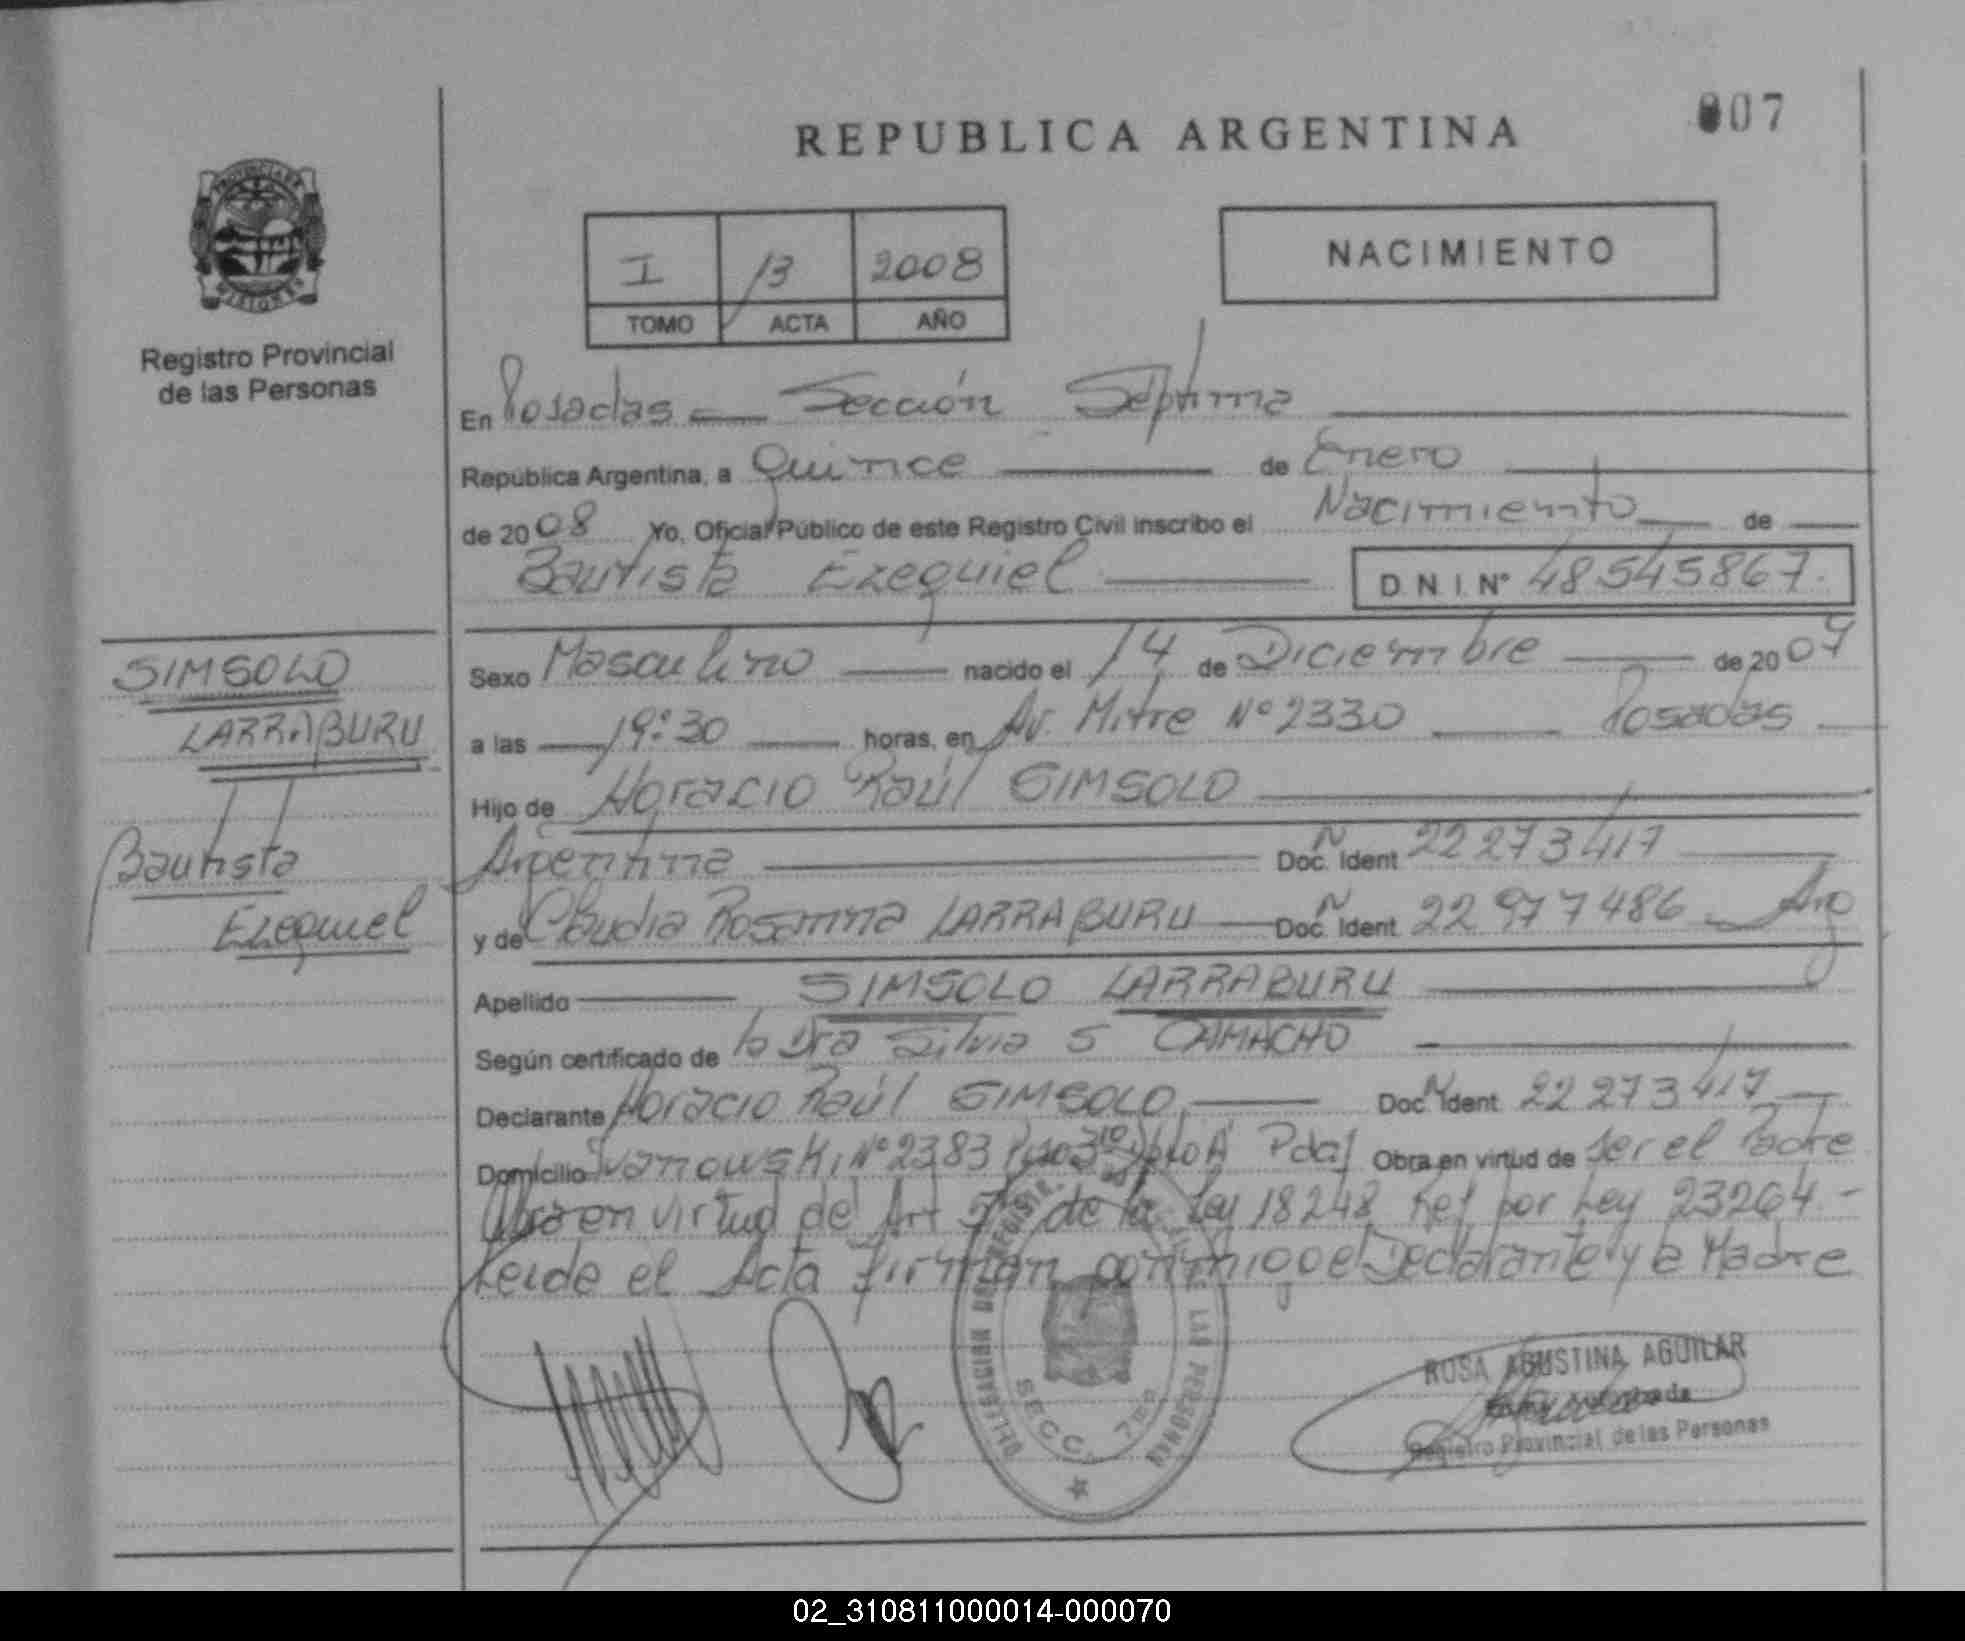 007
REPUBLICA ARGENTINA
PROVINCIA DE
MISIONES
Registro Provincial
de las Personas
I 13 2008
TOMO ACTA AÑO
NACIMIENTO
En Posadas Sección Séptima
República Argentina, a Quince de Enero
de 2008 Yo, Oficial Público de este Registro Civil inscribo el Nacimiento de
Bautista Ezequiel D.N.I. Nº 48545867.
SIMSOLO
LARRABURU
Bautista
Ezequiel
Sexo Masculino nacido el 14 de Diciembre de 2007
a las 19:30 horas, en Av. Mitre Nº 2330 Posadas
Hijo de Horacio Raúl SIMSOLO
Argentina Doc. Ident. N 22273417
y de Claudia Rosanna LARRABURU Doc. Ident. N 22977486 Arg
Apellido SIMSOLO LARRABURU
Según certificado de la Dra Silvia S CAMACHO
Declarante Horacio Raúl SIMSOLO Doc. N Ident. 22273417
Domicilio Ivanowski Nº 2383 Piso 3º Dpto A Pdas Obra en virtud de ser el Padre
Obra en virtud del Art 5º de la Ley 18248 Ref por Ley 23264.-
Leida el Acta firman conmigo el Declarante y la Madre
DELEGACION DEL REGISTR. LAS PERSONAS
SECC. 7ma
ROSA AGUSTINA AGUILAR
Registro Provincial de las Personas
02_310811000014-000070